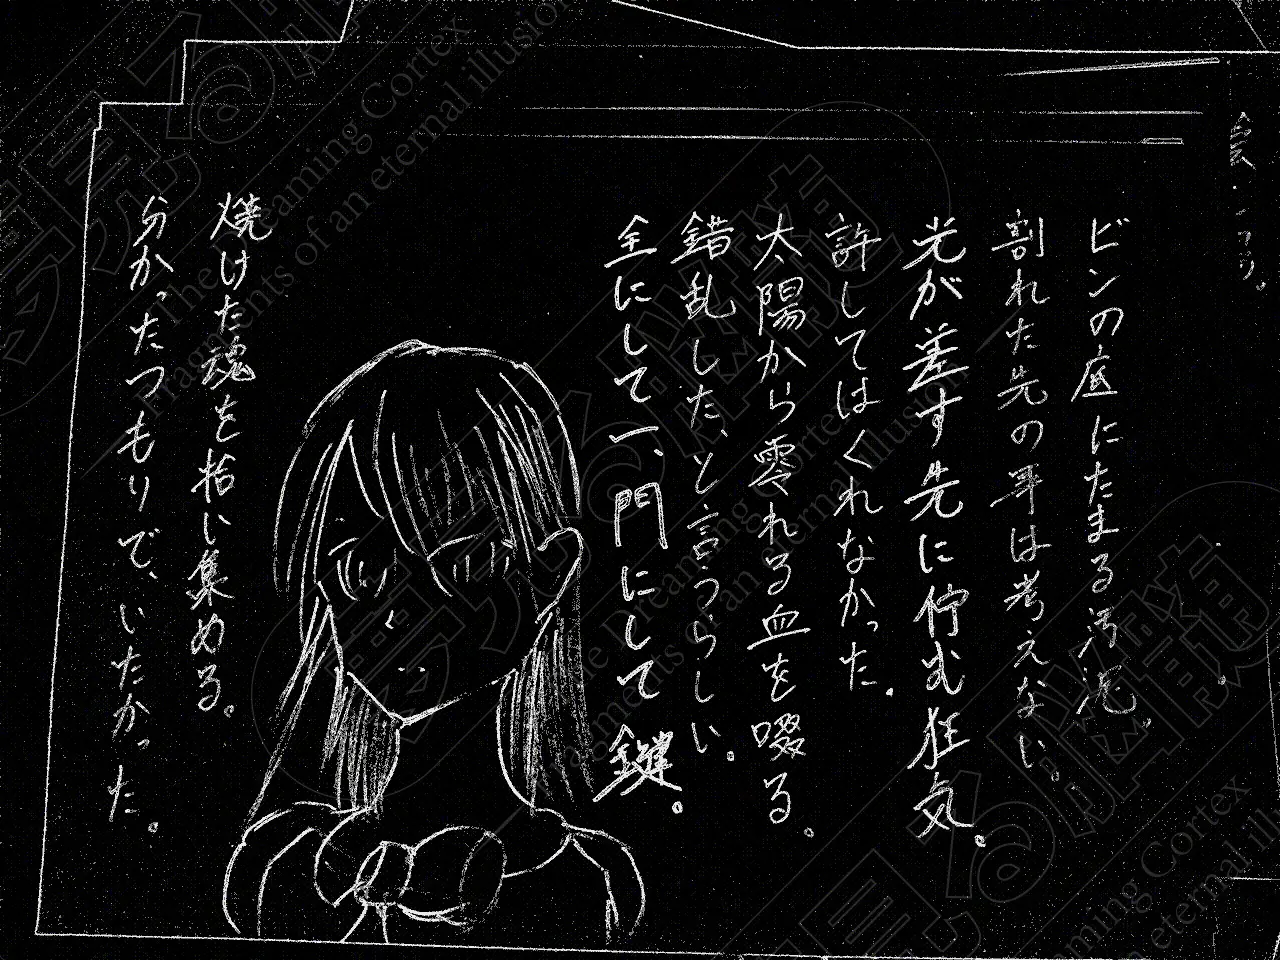 ビンの底にたまる汚泥。
割れた先の事は考えない。
光が差す先に佇む狂気。
許してはくれなかった。
太陽から零れる血を啜る。
錯乱した、と言うらしい。
全にして一、門にして鍵。
焼けた魂を拾い集める。
分かったつもりで、いたかった。
夢見る機械脳
The Dreaming Cortex
Fragments of an eternal illusion